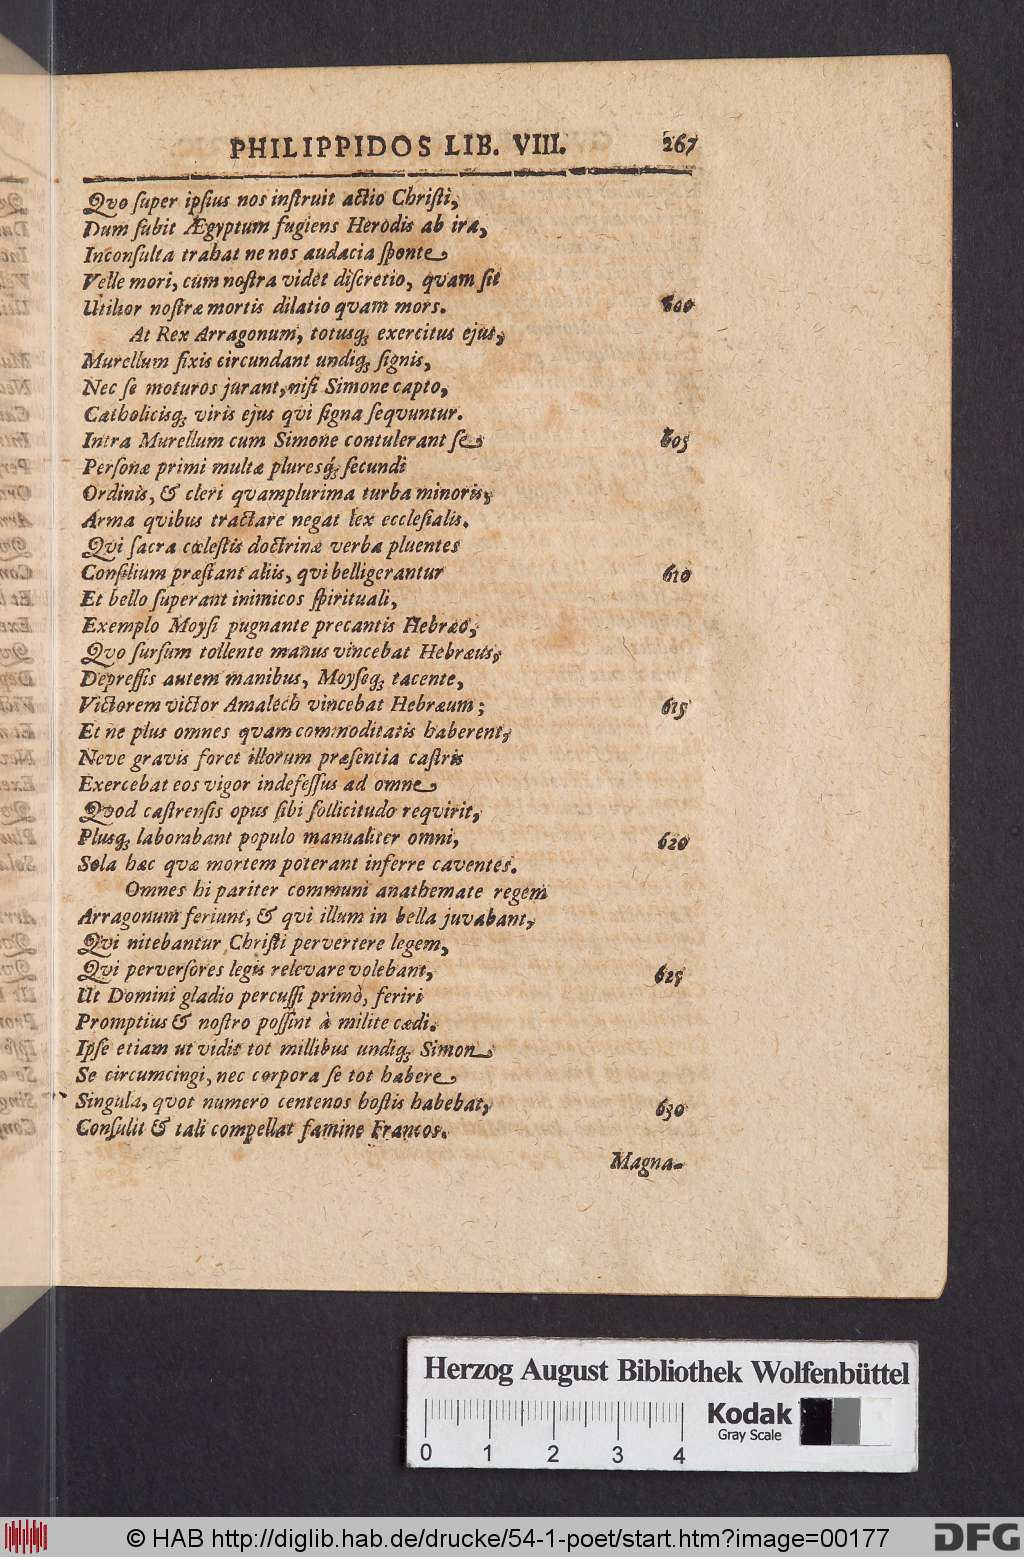 PHILIPPIDOS LIB. VIII. 267
Qvo ſuper ipſius nos inſtruit actio Chriſti,
Dum ſubit Ægyptum fugiens Herodis ab ira,
Inconſulta trahat ne nos audacia ſponte
Velle mori, cùm noſtra videt diſcretio, qvam ſit
Utilior noſtræ mortis dilatio qvam mors. 600
At Rex Arragonum, totusq; exercitus ejus,
Murellum fixis circundant undiq; ſignis,
Nec ſe moturos jurant, niſi Simone capto,
Catholicisq; viris ejus qvi ſigna ſeqvuntur.
Intra Murellum cum Simone contulerant ſe 605
Perſonæ primi multæ pluresq́; ſecundi
Ordinis, & cleri qvamplurima turba minoris,
Arma qvibus tractare negat lex eccleſialis.
Qvi ſacra cœleſtis doctrinæ verba pluentes
Conſilium præſtant aliis, qvi belligerantur 610
Et bello ſuperant inimicos ſpirituali,
Exemplo Moyſi pugnante precantis Hebræo,
Qvo ſurſum tollente manus vincebat Hebræus,
Depreſſis autem manibus, Moyſeq; tacente,
Victorem victor Amalech vincebat Hebræum; 615
Et ne plus omnes qvam commoditatis haberent,
Neve gravis foret illorum præſentia caſtris
Exercebat eos vigor indefeſſus ad omne
Qvod caſtrenſis opus ſibi ſollicitudo reqvirit,
Plusq; laborabant populo manualiter omni, 620
Sola hæc qvæ mortem poterant inferre caventes.
Omnes hi pariter communi anathemate regem
Arragonum feriunt, & qvi illum in bella juvabant,
Qvi nitebantur Chriſti pervertere legem,
Qvi perverſores legis relevare volebant, 625
Ut Domini gladio percuſſi primò, feriri
Promptius & noſtro poſſint à milite cædi.
Ipſe etiam ut vidit tot millibus undiq; Simon
Se circumcingi, nec corpora ſe tot habere
Singula, quot numero centenos hoſtis habebat, 630
Conſulit & tali compellat famine Francos.
Magna-
Herzog August Bibliothek Wolfenbüttel
0 1 2 3 4
Kodak
Gray Scale
© HAB http://diglib.hab.de/drucke/54-1-poet/start.htm?image=00177
DFG